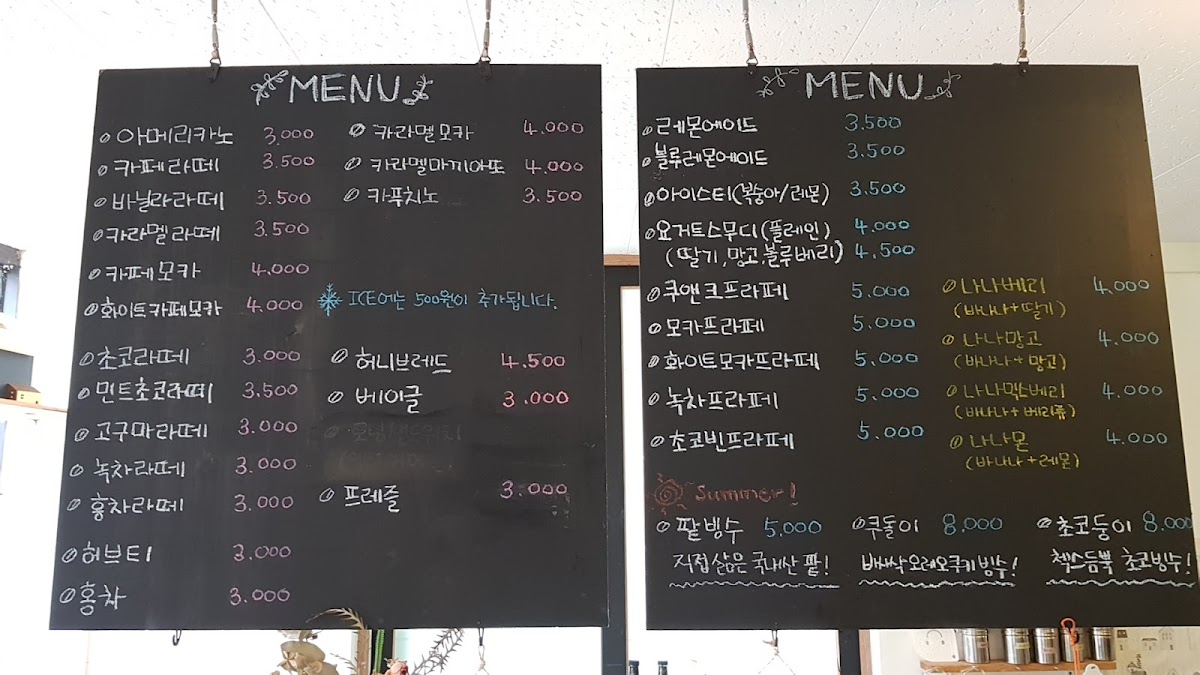 MENU
아메리카노 3.000
카페라떼 3.500
바닐라라떼 3.500
카라멜라떼 3.500
카페모카 4.000
화이트카페모카 4.000
초코라떼 3.000
민트초코라떼 3.500
고구마라떼 3.000
녹차라떼 3.000
홍차라떼 3.000
허브티 3.000
홍차 3.000
카라멜모카 4.000
카라멜마끼아또 4.000
카푸치노 3.500
ICE에는 500원이 추가됩니다.
허니브레드 4.500
베이글 3.000
프레즐 3.000
MENU
레몬에이드 3.500
블루레몬에이드 3.500
아이스티(복숭아/레몬) 3.500
요거트스무디(플레인) 4.000
(딸기,망고,블루베리) 4.500
쿠앤크프라페 5.000
모카프라페 5.000
화이트모카프라페 5.000
녹차프라페 5.000
초코빈프라페 5.000
나나베리 4.000
(바나나+딸기)
나나망고 4.000
(바나나+망고)
나나믹스베리 4.000
(바나나+베리류)
나나몬 4.000
(바나나+레몬)
Summer!
팥빙수 5.000
직접삶은 국내산 팥!
쿠돌이 8.000
빠싹오레오쿠키빙수!
초코둥이 8.00
첵스듬뿍 초코빙수!